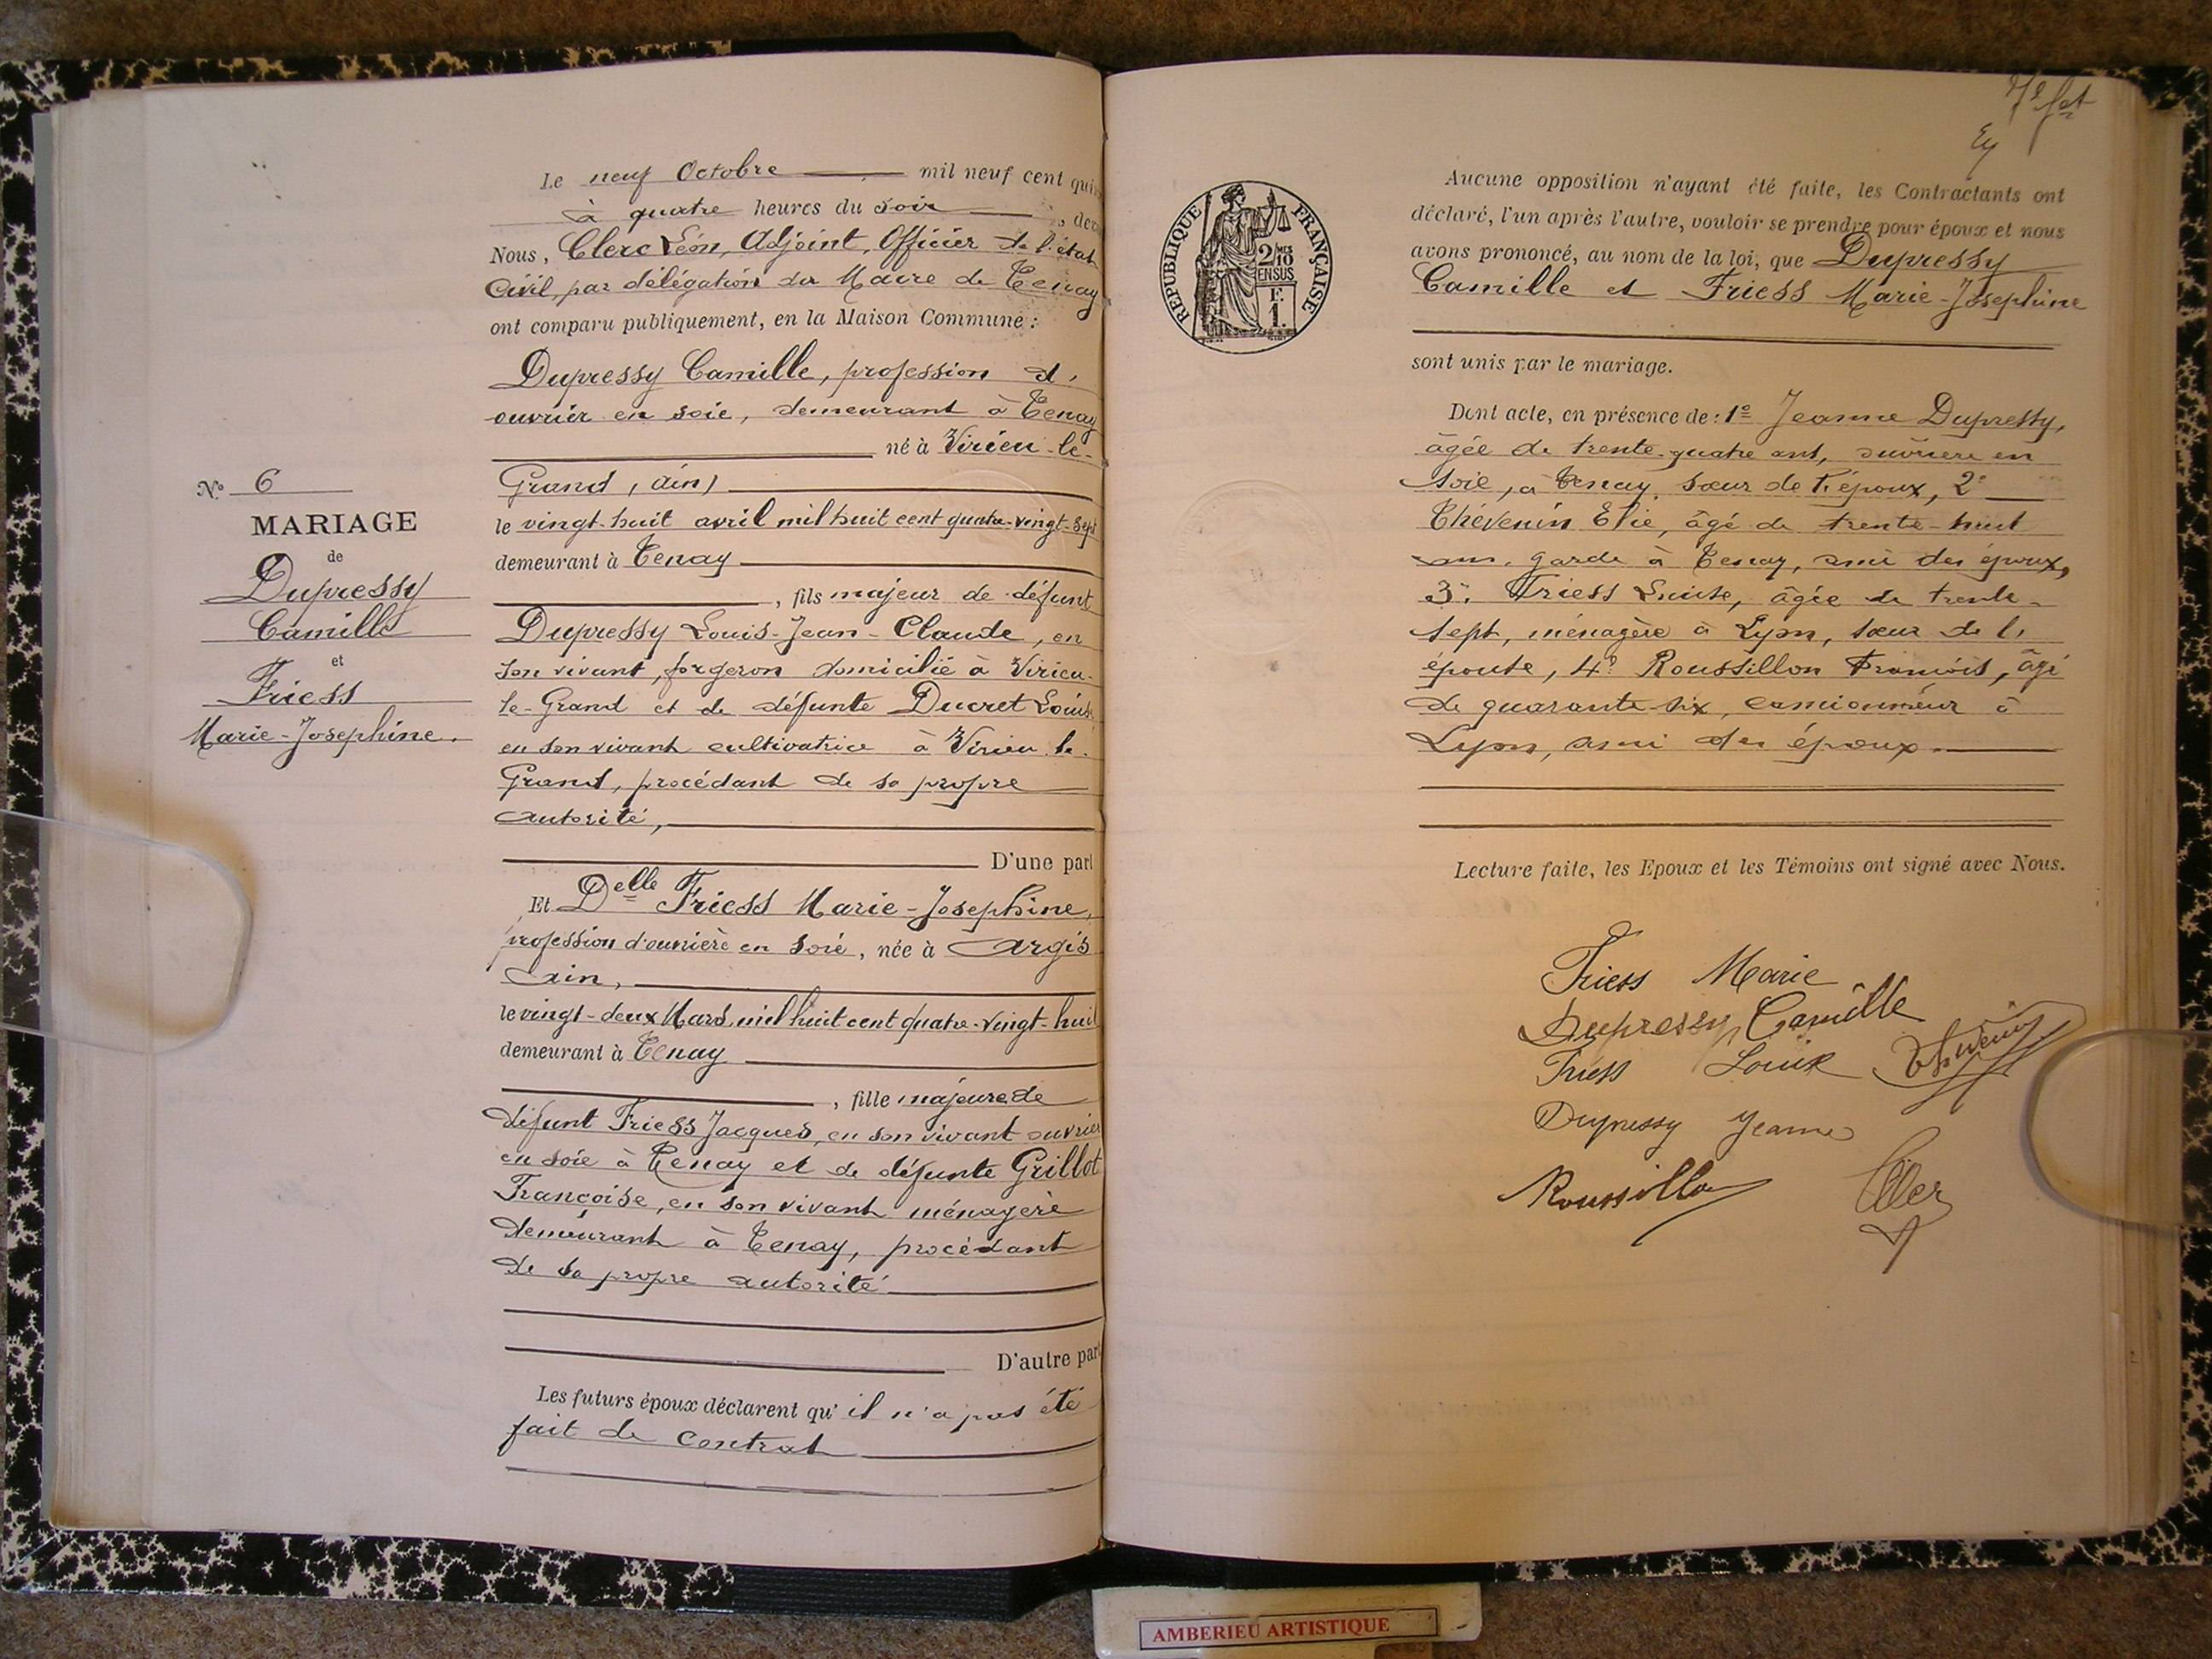 Le neuf Octobre mil neuf cent qui
à quatre heures du soir, dev
Nous, Clerc Léon, Adjoint, Officier de l'état
Civil, par délégation du Maire de Tenay
ont comparu publiquement, en la Maison Commune :
Dupressy Camille, profession d'
ouvrier en soie, demeurant à Tenay
né à Virieu-le-
Grand, (Ain)
le vingt-huit avril mil huit cent quatre-vingt-sept
demeurant à Tenay
, fils majeur de défunt
Dupressy Louis-Jean-Claude, en
son vivant, forgeron domicilié à Virieu-
le-Grand et de défunte Ducret Louise
en son vivant cultivatrice à Virieu-le-
Grand, procédant de sa propre
autorité,
D'une part
Et Delle Friess Marie-Josephine,
profession d'ouvrière en soie, née à Argis
Ain,
le vingt-deux Mars mil huit cent quatre-vingt-huit
demeurant à Tenay
, fille majeure de
défunt Friess Jacques, en son vivant ouvrier
en soie à Tenay et de défunte Grillot
Françoise, en son vivant ménagère
demeurant à Tenay, procédant
de sa propre autorité
D'autre part
Les futurs époux déclarent qu'il n'a pas été
fait de contrat
N° 6
MARIAGE
de
Dupressy
Camille
et
Friess
Marie-Josephine.
RÉPUBLIQUE FRANÇAISE
2/10
EN SUS
F.
1.
Aucune opposition n'ayant été faite, les Contractants ont
déclaré, l'un après l'autre, vouloir se prendre pour époux et nous
avons prononcé, au nom de la loi, que Dupressy
Camille et Friess Marie-Josephine
sont unis par le mariage.
Dont acte, en présence de : 1° Jeanne Dupressy,
âgée de trente-quatre ans, ouvrière en
soie, à Tenay, sœur de l'époux, 2°
Thévenin Elie, âgé de trente-huit
ans, garde à Tenay, ami des époux,
3° Friess Louise, âgée de trente-
sept, ménagère à Lyon, sœur de l'
épouse, 4° Roussillon François, âgé
de quarante-six, camionneur à
Lyon, ami des époux.
Lecture faite, les Epoux et les Témoins ont signé avec Nous.
Friess Marie
Dupressy Camille
Friess Louise Thévenin
Dupressy Jeanne
Roussillon Clerc
AMBERIEU ARTISTIQUE